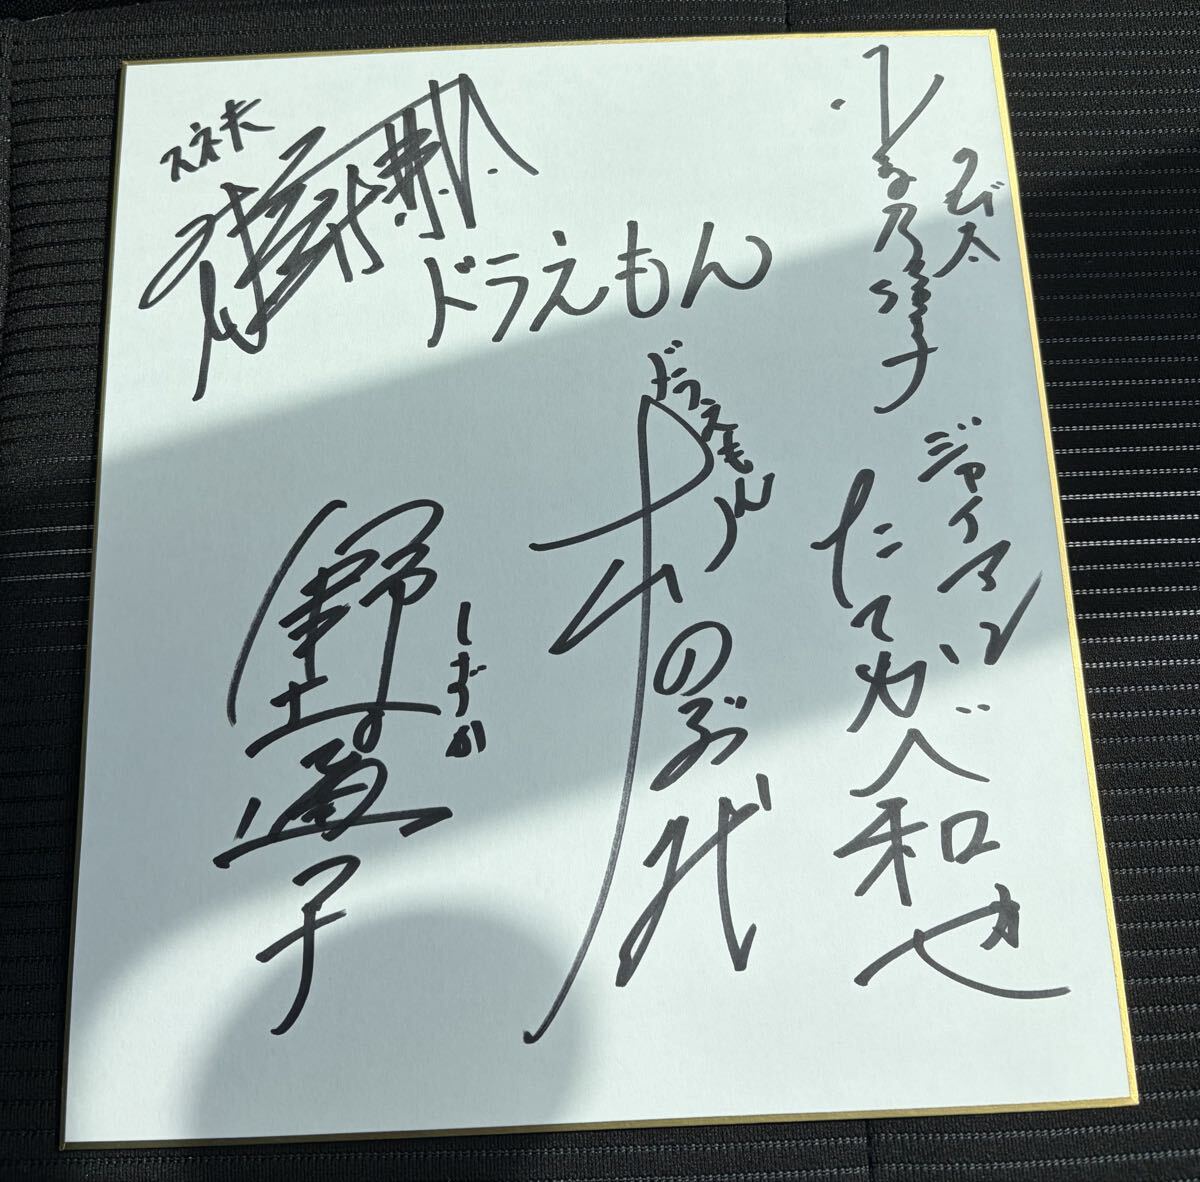 スネ夫
ドラえもん
のび太
ジャイアン
たてかべ和也
ドラえもん
大山のぶ代
しずか
野村道子